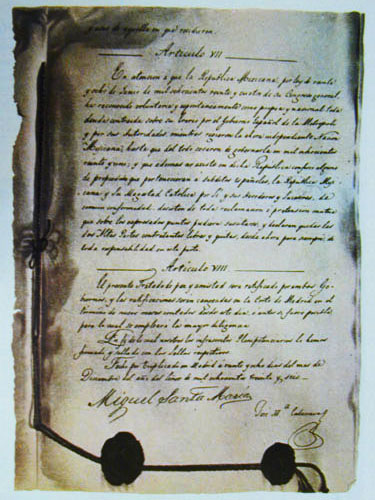 y uso de aquellos en que residieren.
Artículo VII
En atencion a que la República Mexicana, por ley de veinte
y ocho de Junio de mil ochocientos veinte y cuatro de su Congreso general,
ha reconocido voluntaria y espontáneamente como propia y nacional toda
deuda contraida sobre su Erario por el Gobierno español de la Metrópoli
y por sus autoridades mientras rigieron la ahora independiente Nacion
Mexicana, hasta que del todo cesaron de gobernarla en mil ochocientos
veinte y uno; y que ademas no existe en dicha República confisco alguno
de propiedades que pertenecieran á súbditos españoles, la República Mej-
icana y la Magestad Católica por sí y sus herederos y sucesores, de
comun conformidad, desisten de toda reclamacion ó pretension mutua
que sobre los expresados puntos pudiera suscitarse, y declaran quedar las
dos Altas Partes contratantes libres y quitas desde ahora para siempre de
toda responsabilidad en esta parte.
Artículo VIII
El presente Tratado de paz y amistad será ratificado por ambos Go-
biernos, y las ratificaciones serán cangeadas en la Corte de Madrid en el
término de nueve meses contados desde este dia, ó antes si fuere posible,
para lo cual se empleará la mayor diligencia.
En fé de lo cual nosotros los infrascritos Plenipotenciarios lo hemos
firmado y sellado con los sellos respectivos.
Fecho por triplicado en Madrid á veinte y ocho dias del mes de
Diciembre del año del Señor de mil ochocientos treinta y seis.
Miguel Santa María
José M.ª Calatrava